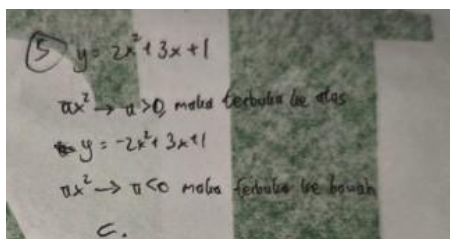 5 y = 2x² + 3x + 1
ax² → a > 0, maka terbuka ke atas
y = -2x² + 3x + 1
ax² → a < 0 maka terbuka ke bawah
C.